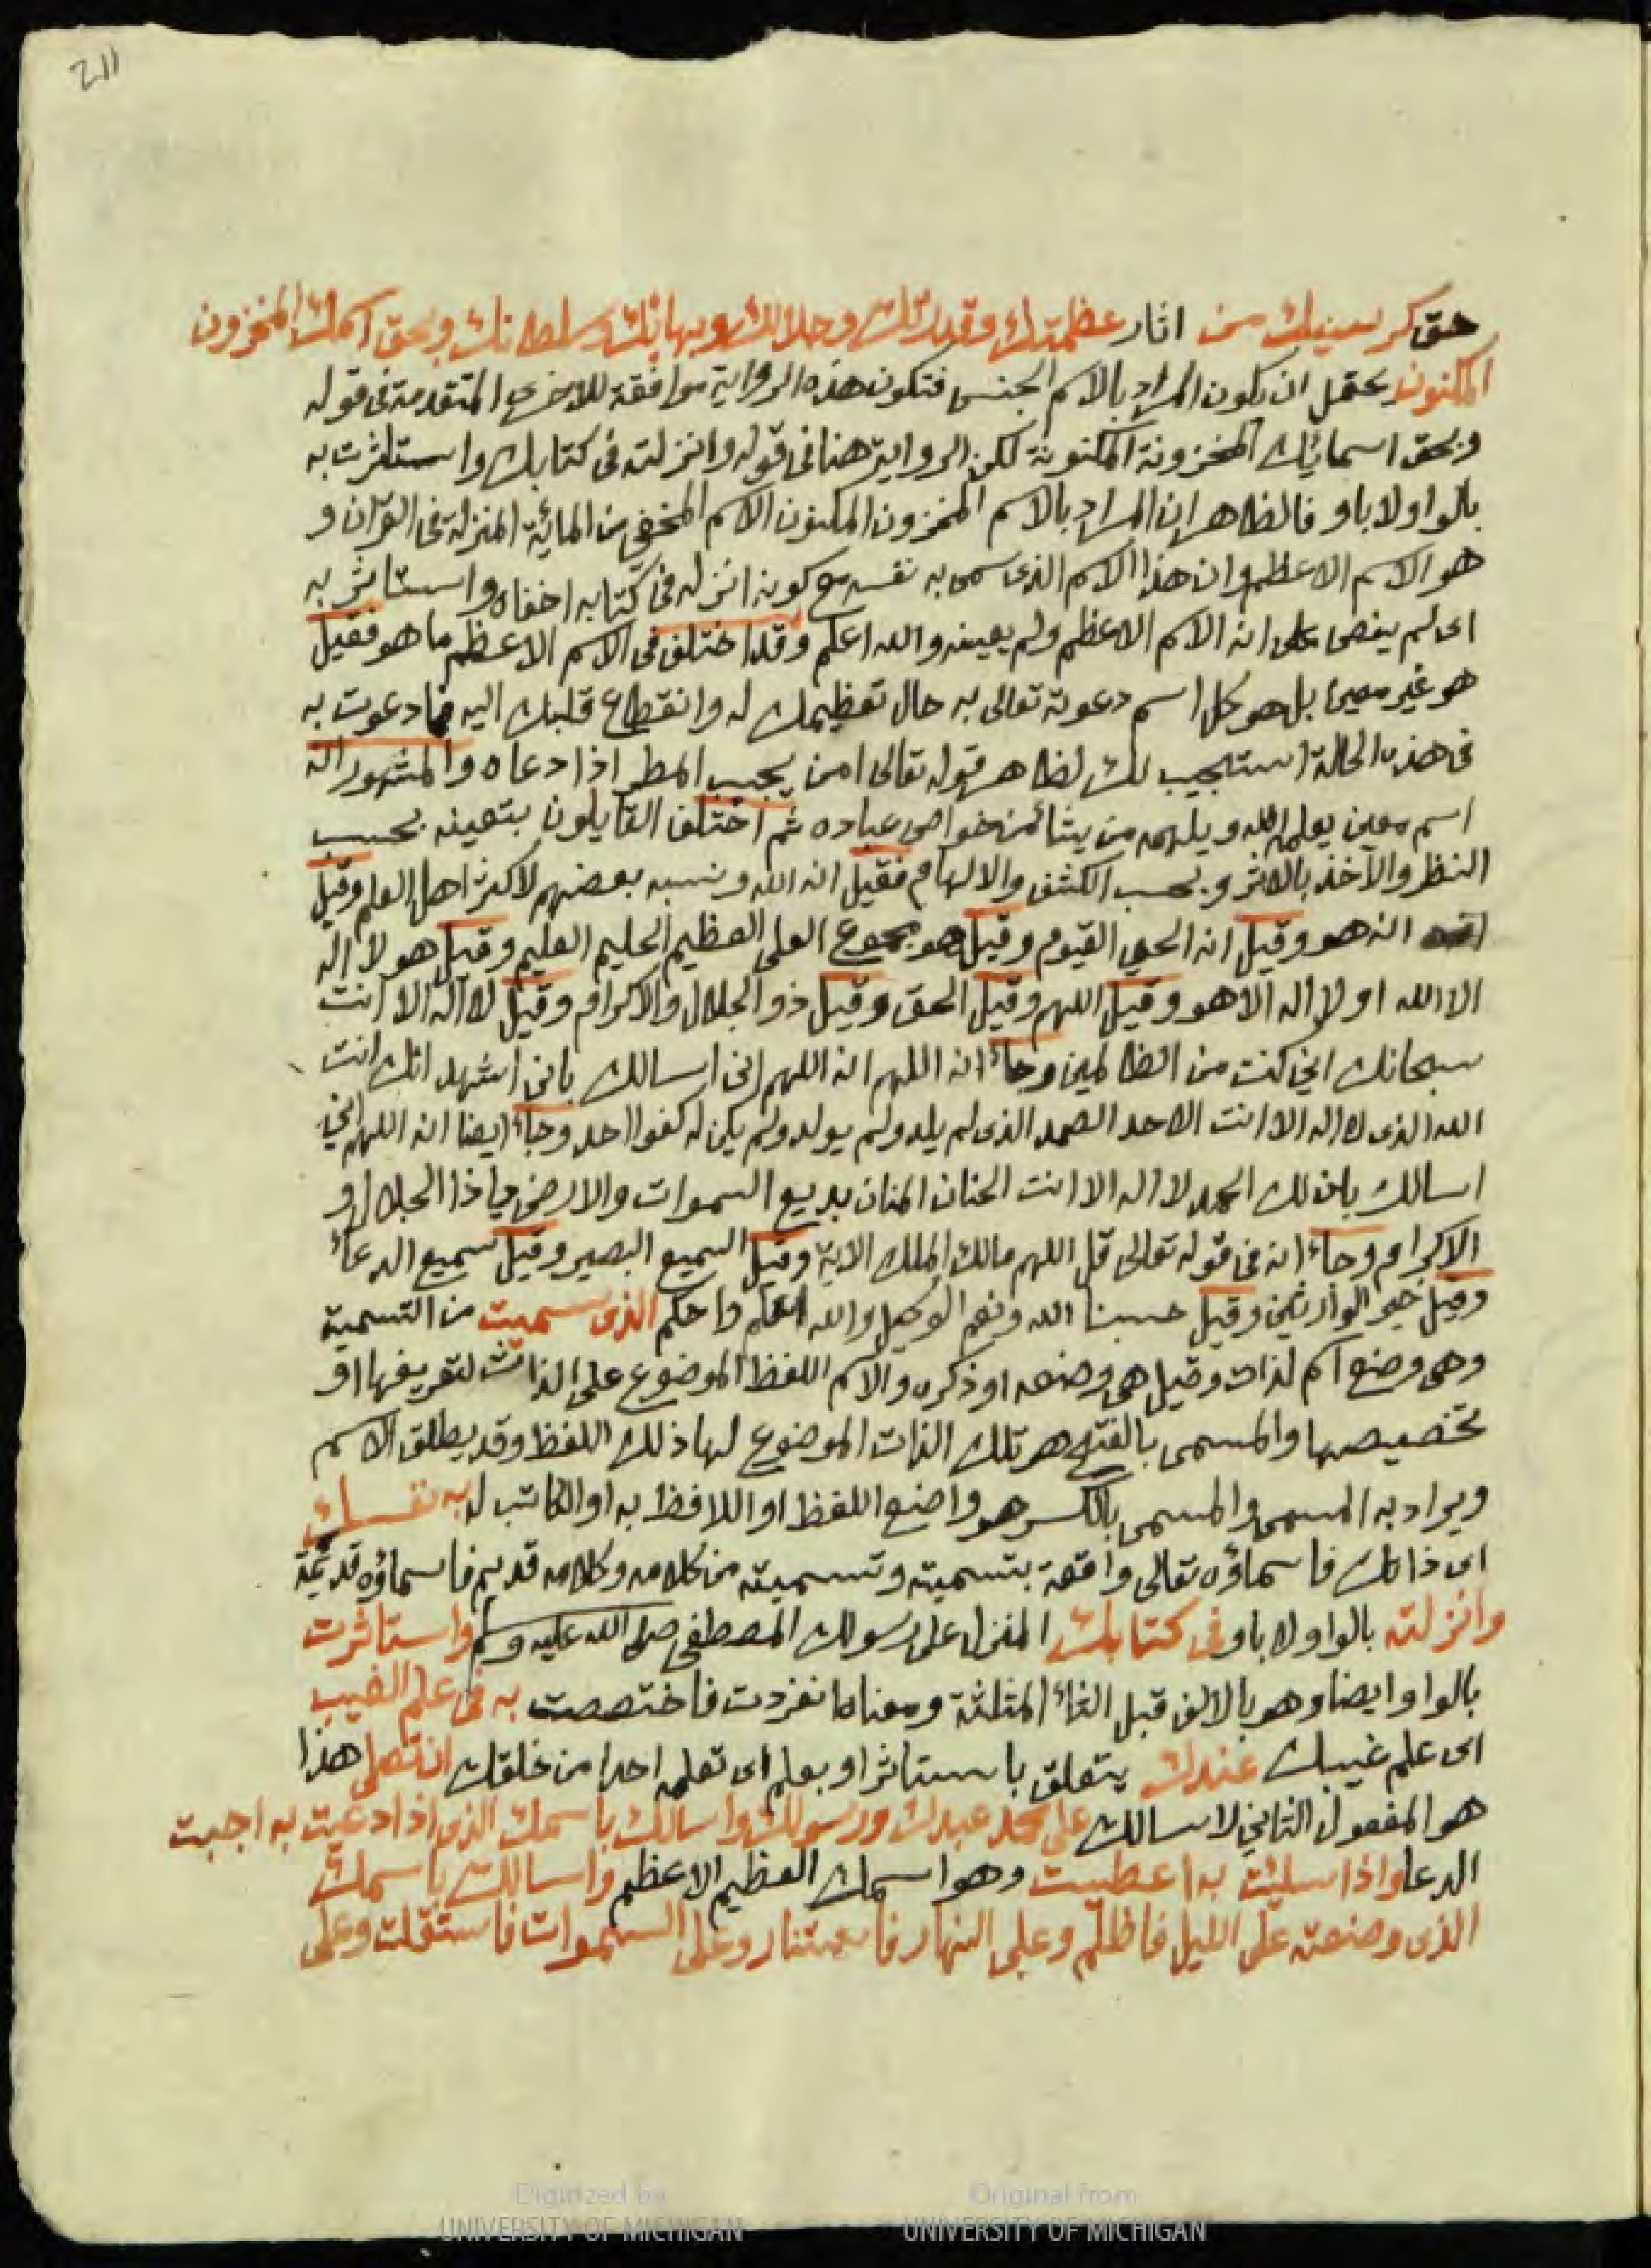 211
حق كرسيك من اثار عظمتك وقدرتك وجلالك وبهائك وسلطانك وبحق اسمك المخزون
المكنون يحتمل ان يكون المراد بالاسم الجنس فتكون هذه الرواية موافقة للاخرى المتقدمة فى قوله
وبحق اسمائك المخزونة المكنونة لكن الرواية هنا فى قوله وانزلته فى كتابك واستأثرت به
بالواو لا باو فالظاهر ان المراد بالاسم المخزون المكنون الاسم المخفى من المائة المنزلة فى القرآن و
هو الاسم الاعظم وان هذا الاسم الذى سمى به نفسه مع كونه انزله فى كتابه اخفاه واستاثر به
اى لم ينص على انه الاسم الاعظم ولم يعينه والله اعلم وقد اختلف فى الاسم الاعظم ما هو فقيل
هو غير معين بل هو كل اسم دعوته تعالى به حال تعظيمك له وانقطاع قلبك اليه فما دعوت به
فى هذه الحالة استجيب لك لظاهر قوله تعالى امن يجيب المطر اذا دعاه والمشهور انه
اسم معين يعلمه الله ويلهمه من يشاء من خواص عباده ثم اختلف القايلون بتعينه بحسب
النظر والآخذ بالاثر وبحسب الكشف والالهام فقيل انه الله ونسبه بعضهم لاكثر اهل العلم وقيل
انه هو وقيل انه الحى القيوم وقيل هو مجموع العلى العظيم الحليم العليم وقيل هو لا اله
الا الله او لا اله الا هو وقيل اللهم وقيل الحق وقيل ذو الجلال والاكرام وقيل لا اله الا انت
سبحانك اني كنت من الظالمين وجاء انه اللهم انه اللهم انى اسالك بانى اشهد انك انت
الله الذى لا اله الا انت الاحد الصمد الذى لم يلد ولم يولد ولم يكن له كفوا احد وجاء ايضا انه اللهم اني
اسالك بان لك الحمد لا اله الا انت الحنان المنان بديع السموات والارض ياذا الجلال و
الاكرام وجاء انه فى قوله تعالى قل اللهم مالك الملك الاية وقيل السميع البصير وقيل سميع الدعاء
وقيل خير الوارثين وقيل حسبنا الله ونعم الوكيل والله اعلم واحكم الذى سميت من التسمية
وهى وضع اسم لذات وقيل هى وضعه او ذكره والاسم اللفظ الموضوع على الذات لتعريفها او
تخصيصها والمسمى بالفتح هو تلك الذات الموضوع لها ذلك اللفظ وقد يطلق الاسم
ويراد به المسمى والمسمى بالكسر هو واضع اللفظ او اللافظ به او الكاتب له به نفسك
اى ذاتك فاسماؤه تعالى واقعة بتسميته وتسميته من كلامه وكلامه قديم فاسماؤه قديمة
وانزلته بالواو لا باو فى كتابك المنزل على رسولك المصطفى صلى الله عليه وسلم واستاثرت
بالواو ايضا وهو بالالف قبل الثاء المثلثة ومعناه انفردت فاختصصت به فى علم الغيب
اى علم غيبك عندك يتعلق باستاثر او بعلم اى تعلمه احدا من خلقك ان تصلى هذا
هو المفعول الثاني لاسالك على محمد عبدك ورسولك واسالك باسمك الذى اذا دعيت به اجبت
الدعا واذا سئلت به اعطيت وهو اسمك العظيم الاعظم واسالك باسمك
الذى وضعته على الليل فاظلم وعلى النهار فاستنار وعلى السموات فاستقلت وعلى
Digitized by
UNIVERSITY OF MICHIGAN
Original from
UNIVERSITY OF MICHIGAN